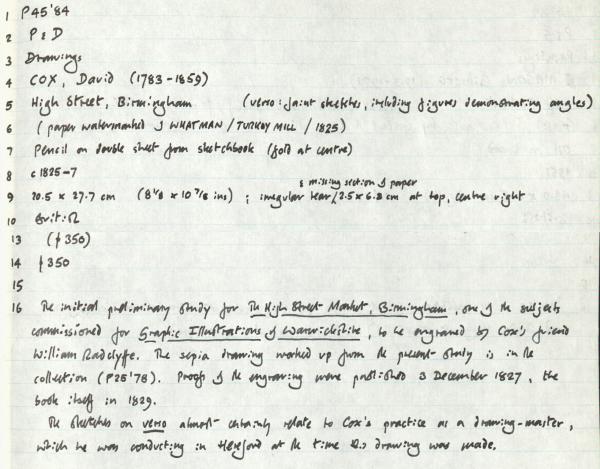 1 P45'84
2 P & D
3 Drawings
4 COX, David (1783-1859)
5 High Street, Birmingham (verso: faint sketches, including figures demonstrating angles)
6 (paper watermarked J WHATMAN / TURKEY MILL / 1825)
7 Pencil on double sheet from sketchbook (fold at centre)
8 c 1825-7
& missing section of paper
9 20.5 x 27.7 cm (8 1/8 x 10 7/8 ins) ; irregular tear / 2.5 x 6.8 cm at top, centre right
10 Brit:
13 (350)
14 350
15
16 The initial preliminary study for The High Street Market, Birmingham, one of the subjects
commissioned for Graphic Illustrations of Warwickshire, to be engraved by Cox's friend
William Radclyffe. The sepia drawing worked up from the present study is in the
collection (P25'78). Proofs of the engraving were published 3 December 1827, the
book itself in 1829.
The sketches on verso almost certainly relate to Cox's practice as a drawing-master,
which he was conducting in Hereford at the time this drawing was made.